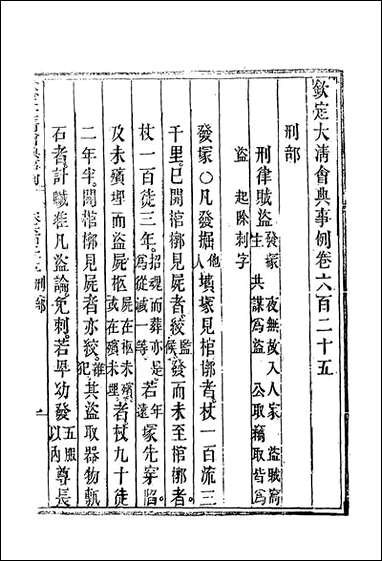 欽定大淸會典事例卷六百二十五
刑部
刑律賊盜 發冢 夜無故入人家 盜賊窩
主 共謀爲盜 公取竊取皆爲
盜 起除刺字
發冢○凡發掘他人墳冢見棺槨者杖一百流三
千里已開棺槨見屍者絞監候發而未至棺槨者
杖一百徒三年招魂而葬亦是爲從減一等若年遠冢先穿陷
及未殯埋而盜屍柩屍在柩未殯或在殯未埋者杖九十徒
二年半開棺槨見屍者亦絞雜犯其盜取器物甎
石者計贓准凡盜論免刺若卑幼發五服以內尊長